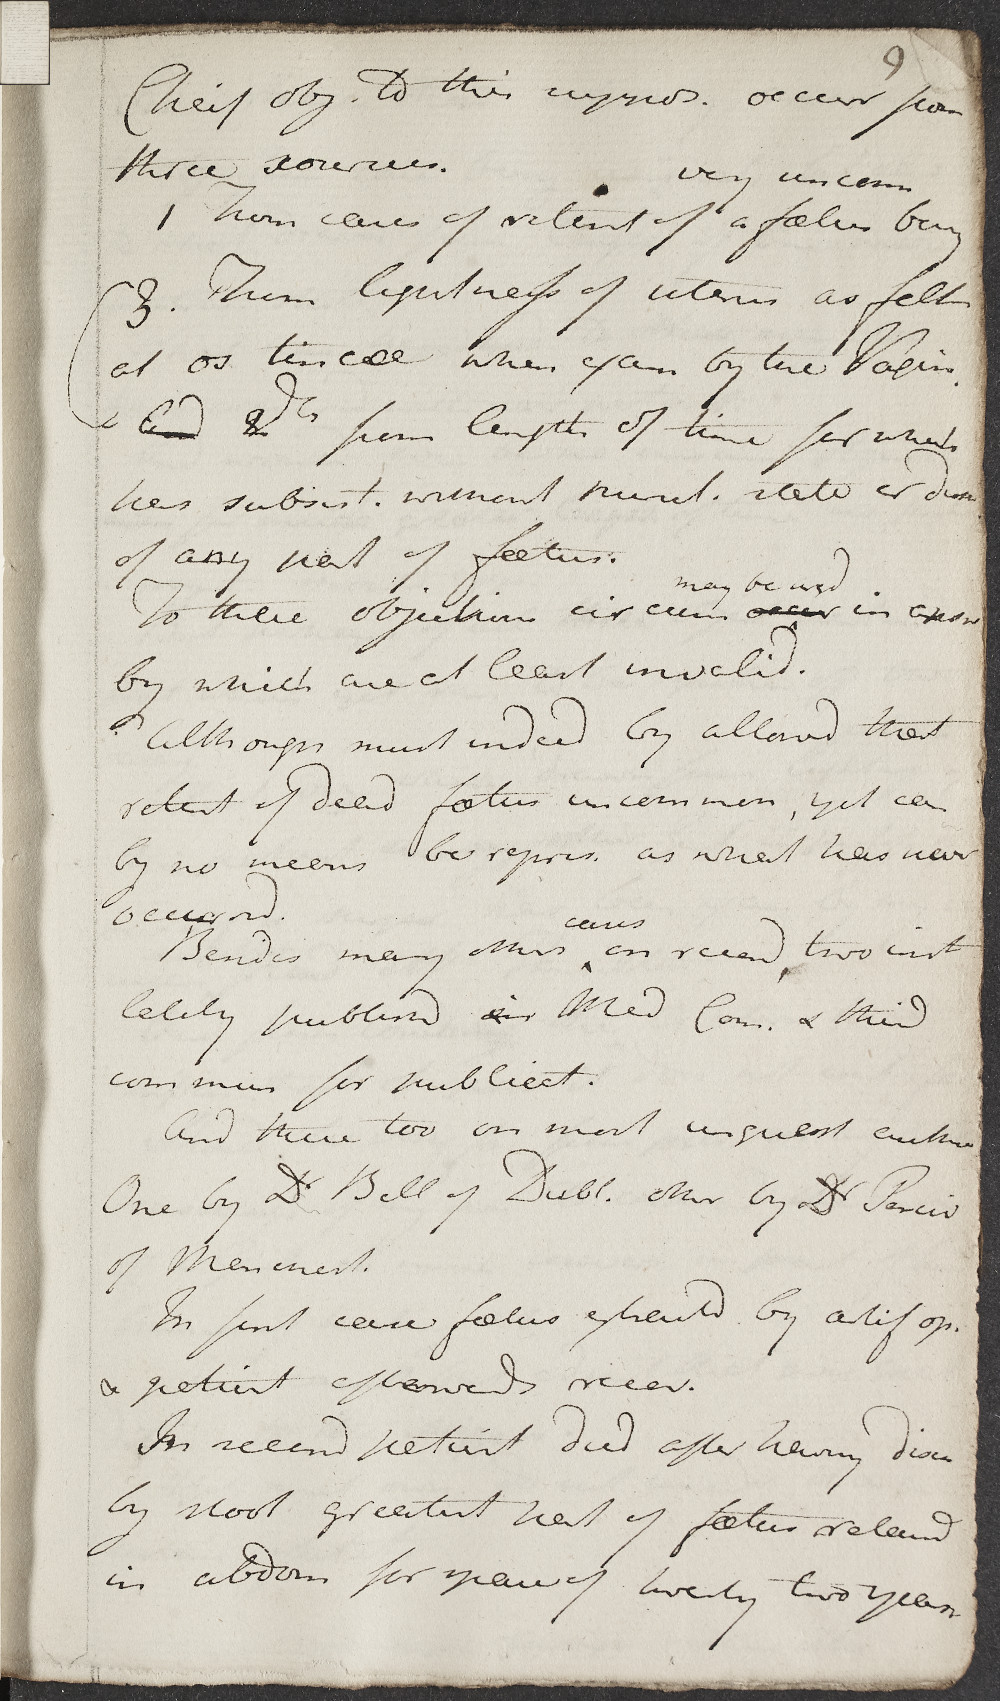 9
Cheif obj. to this suppos. occur from
three sources.
very uncom
1 From cases of retent of a fœtus being
3. From lightness of uterus as felt
at os tincæ when exam by the Vagin.
& 2dly from length of time for which
has subsist. without natural. state or disch
of any part of fœtus.
To these objections circum may be used occur in answ
by which are at least invalid.
Although must indeed by allowd that
retent of dead fœtus uncommon, yet can
by no means be repres. as what has never
occurrd.
Besides many others cases on record, two inst
lately publishd in Med Com. & third
commun for publicat.
And these too on most unquest author
One by Dr Bell of Dubl. other by Dr Perciv
of Manchest.
In first case fœtus extractd by artif op.
& patient afterwards recov.
In second patient died after having disch
by stool greatest part of fœtus retaind
in abdom for space of twenty two years